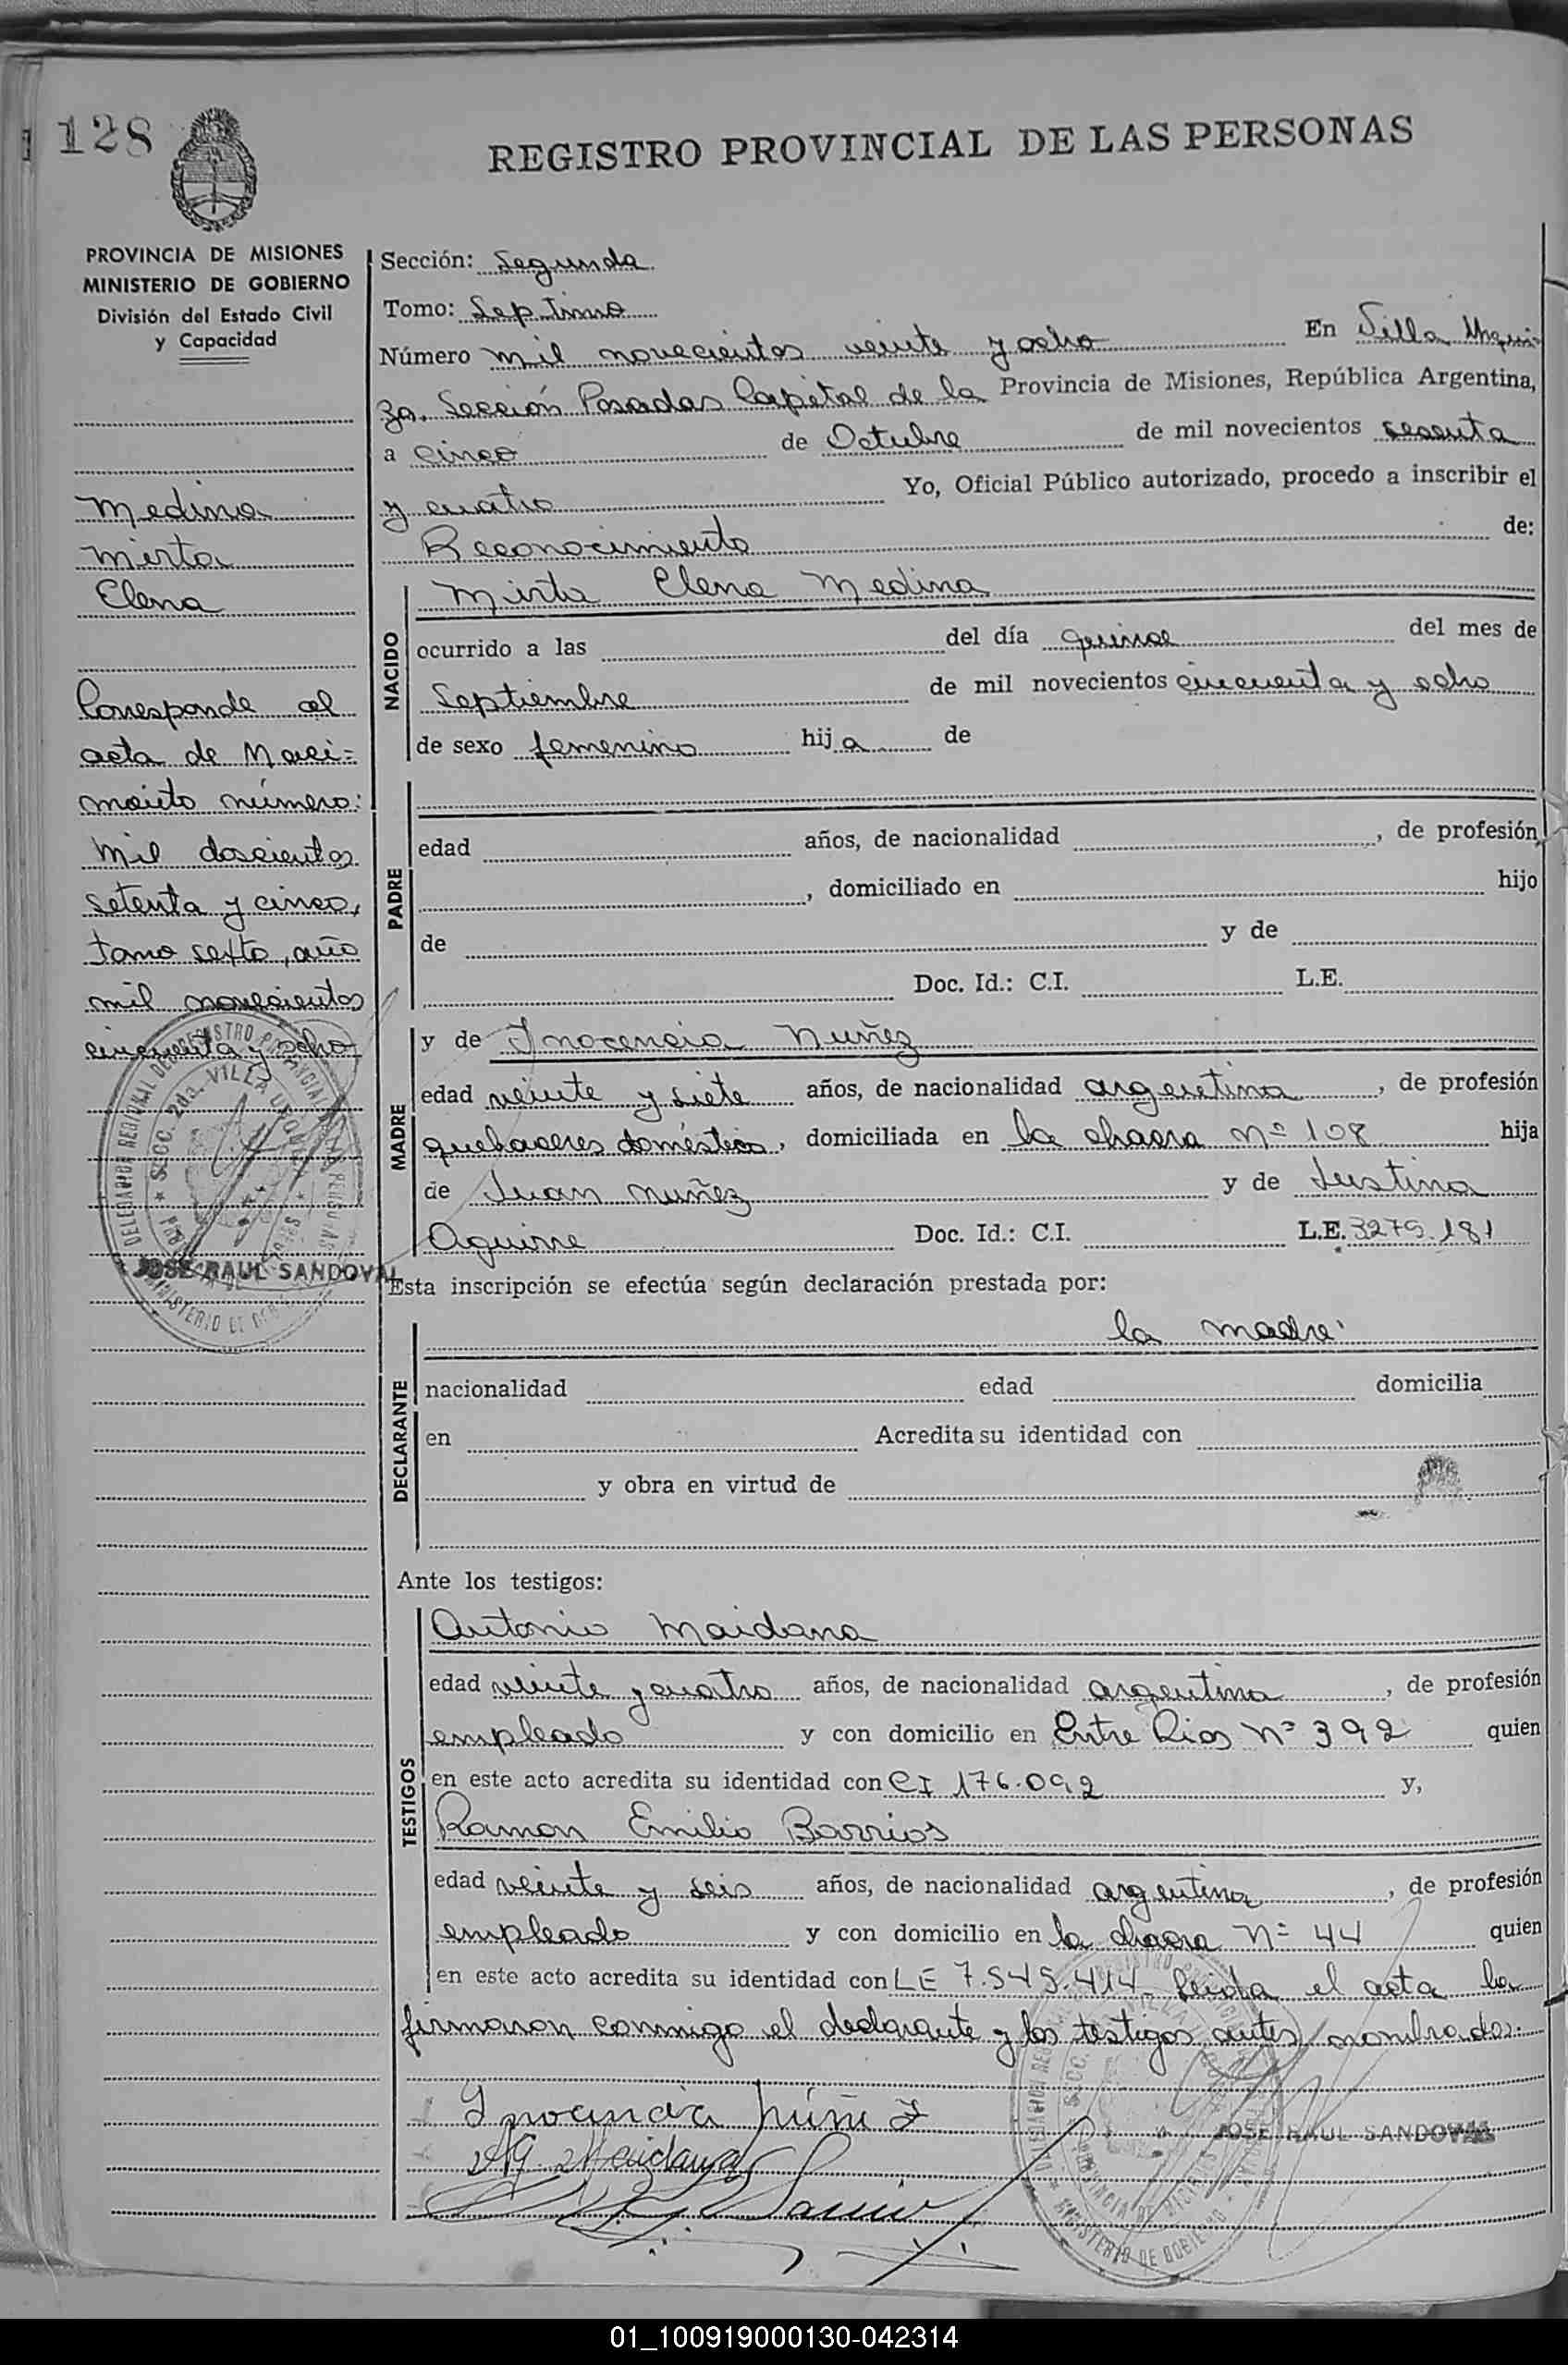 128
REGISTRO PROVINCIAL DE LAS PERSONAS
PROVINCIA DE MISIONES
MINISTERIO DE GOBIERNO
División del Estado Civil
y Capacidad
Medina
Mirta
Elena
Corresponde al
acta de Naci=
miento número:
mil doscientos
setenta y cinco,
tomo sexto, año
mil novecientos
cincuenta y ocho
DELEGACION REGIONAL DEL REGISTRO PROVINCIAL DE LAS PERSONAS
SECC. 2da. VILLA URQUIZA
MINISTERIO DE GOBIERNO
JOSE RAUL SANDOVAL
Sección: Segunda
Tomo: Septimo
Número mil novecientos veinte y ocho En Villa Urqui-
za. Sección Posadas Capital de la Provincia de Misiones, República Argentina,
a cinco de Octubre de mil novecientos sesenta
y cuatro Yo, Oficial Público autorizado, procedo a inscribir el
Reconocimiento de:
NACIDO
Mirta Elena Medina
ocurrido a las del día quince del mes de
Septiembre de mil novecientos cincuenta y ocho
de sexo femenino hija de
PADRE
edad años, de nacionalidad , de profesión
, domiciliado en hijo
de y de
Doc. Id.: C.I. L.E.
MADRE
y de Inocencia Nuñez
edad veinte y siete años, de nacionalidad argentina, de profesión
quehaceres domésticos, domiciliada en la chacra Nº 108 hija
de Juan Nuñez y de Justina
Aguirre Doc. Id.: C.I. L.E. 3275.181
Esta inscripción se efectúa según declaración prestada por:
DECLARANTE
la madre
nacionalidad edad domicilia
en Acredita su identidad con
y obra en virtud de
Ante los testigos:
TESTIGOS
Antonio Maidana
edad veinte y cuatro años, de nacionalidad argentina, de profesión
empleado y con domicilio en Entre Rios Nº 392 quien
en este acto acredita su identidad con CI 176.092 y,
Ramon Emilio Barrios
edad veinte y seis años, de nacionalidad argentina, de profesión
empleado y con domicilio en la chacra Nº 44 quien
en este acto acredita su identidad con LE 7.545.414 Leida el acta la
firmaron conmigo el declarante y los testigos antes nombrados.
Inocencia Núñez
Maidana
JOSE RAUL SANDOVAL
MINISTERIO DE GOBIERNO
01_100919000130-042314